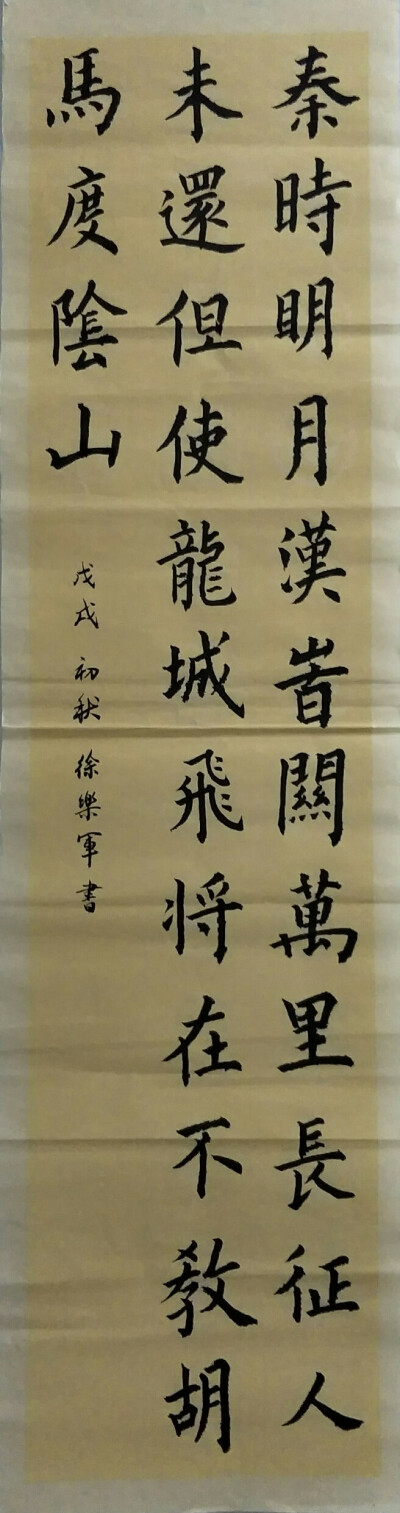 秦時明月漢旹關萬里長征人
未還但使龍城飛将在不教胡
馬度陰山
戊戌初秋徐樂軍書